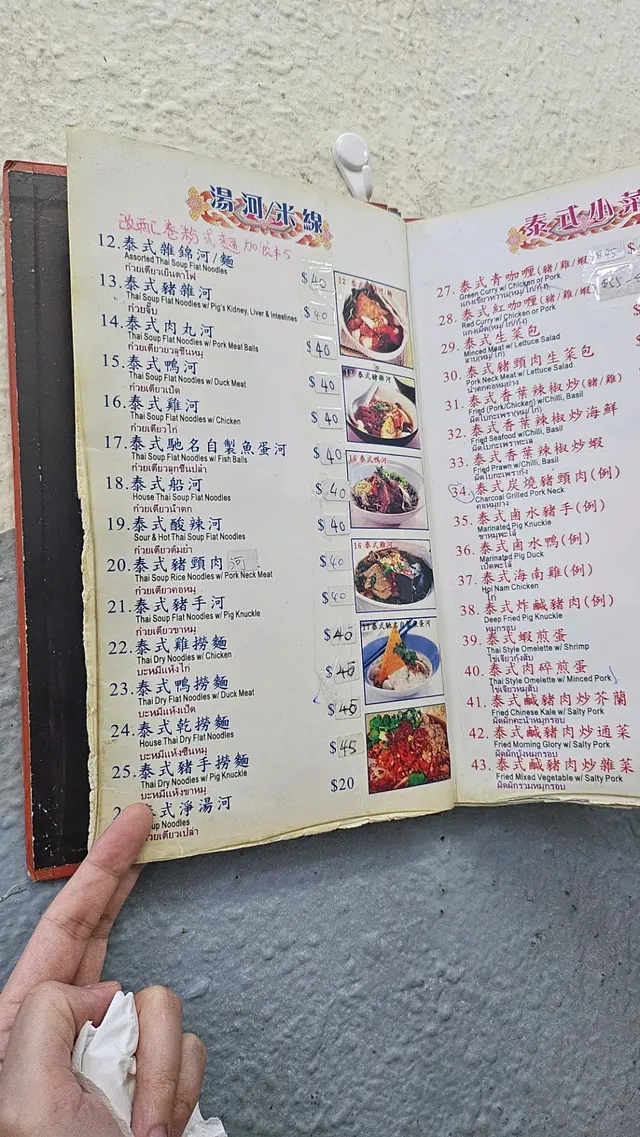 湯河/米線
改配卷粉或麵加收$5
12.泰式雜錦河/麵 $40
Assorted Thai Soup Flat Noodles
ก๋วยเตี๋ยวเย็นตาโฟ
13.泰式豬雜河 $40
Thai Soup Flat Noodles w/ Pig's Kidney, Liver & Intestines
ก๋วยจั๊บ
14.泰式肉丸河 $40
Thai Soup Flat Noodles w/ Pork Meat Balls
15.泰式鴨河 $40
Thai Soup Flat Noodles w/ Duck Meat
ก๋วยเตี๋ยวเป็ด
16.泰式雞河 $40
Thai Soup Flat Noodles w/ Chicken
ก๋วยเตี๋ยวไก่
17.泰式馳名自製魚蛋河 $40
Thai Soup Flat Noodles w/ Fish Balls
ก๋วยเตี๋ยวลูกชิ้นปลา
18.泰式船河 $40
House Thai Soup Flat Noodles
ก๋วยเตี๋ยวน้ำตก
19.泰式酸辣河 $40
Sour & Hot Thai Soup Flat Noodles
ก๋วยเตี๋ยวต้มยำ
20.泰式豬頸肉河 $40
Thai Soup Rice Noodles w/ Pork Neck Meat
ก๋วยเตี๋ยวคอหมู
21.泰式豬手河 $40
Thai Soup Flat Noodles w/ Pig Knuckle
ก๋วยเตี๋ยวขาหมู
22.泰式雞撈麵 $40
Thai Dry Noodles w/ Chicken
บะหมี่แห้งไก่
23.泰式鴨撈麵 $45
Thai Dry Flat Noodles w/ Duck Meat
บะหมี่แห้งเป็ด
24.泰式乾撈麵 $45
House Thai Dry Flat Noodles
บะหมี่แห้งชิ้นหมู
25.泰式豬手撈麵 $45
Thai Dry Noodles w/ Pig Knuckle
บะหมี่แห้งขาหมู
2 泰式淨湯河 $20
Noodles
ก๋วยเตี๋ยวเปล่า
16 泰式雞河
泰式小菜
27.泰式青咖喱(豬/雞/蝦
Green Curry w/ Chicken or Pork
แกงเขียวหวาน(หมู/ไก่/กุ้ง)
28.泰式紅咖喱(豬/雞/蝦
Red Curry w/ Chicken or Pork
แกงเผ็ด(หมู/ไก่/กุ้ง)
29.泰式生菜包
Minced Meat w/ Lettuce Salad
ลาบ(หมู/ไก่)
30.泰式豬頸肉生菜包
Pork Neck Meat w/ Lettuce Salad
น้ำตกคอหมูย่าง
31.泰式香葉辣椒炒(豬/雞)
Fried (Pork/Chicken) w/Chilli, Basil
ผัดใบกะเพรา(หมู/ไก่)
32.泰式香葉辣椒炒海鮮
Fried Seafood w/Chilli, Basil
ผัดใบกะเพราทะเล
33.泰式香葉辣椒炒蝦
Fried Prawn w/Chilli, Basil
ผัดใบกะเพรากุ้ง
34.泰式炭燒豬頸肉(例)
Charcoal Grilled Pork Neck
คอหมูย่าง
35.泰式鹵水豬手(例)
Marinated Pig Knuckle
ขาหมูพะโล้
36.泰式鹵水鴨(例)
Marinated Pig Duck
เป็ดพะโล้
37.泰式海南雞(例)
Hoi Nam Chicken
ไก่
38.泰式炸鹹豬肉(例)
Deep Fried Pig Knuckle
หมูกรอบ
39.泰式蝦煎蛋
Thai Style Omelette w/ Shrimp
ไข่เจียวกุ้งสับ
40.泰式肉碎煎蛋
Thai Style Omelette w/ Minced Pork
ไข่เจียวหมูสับ
41.泰式鹹豬肉炒芥蘭
Fried Chinese Kale w/ Salty Pork
ผัดผักคะน้าหมูกรอบ
42.泰式鹹豬肉炒通菜
Fried Morning Glory w/ Salty Pork
ผัดผักบุ้งหมูกรอบ
43.泰式鹹豬肉炒雜菜
Fried Mixed Vegetable w/ Salty Pork
ผัดผักรวมหมูกรอบ